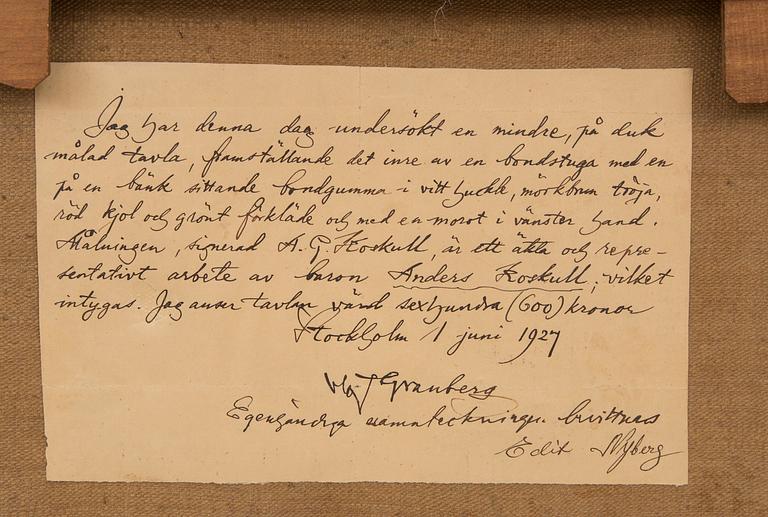 Jag har denna dag undersökt en mindre, på duk
målad tavla, framställande det inre av en bondstuga med en
på en bänk sittande bondgumma i vitt huckle, mörkbrun tröja,
röd kjol och grönt förkläde och med en morot i vänster hand.
Målningen, signerad A. G. Koskull, är ett äkta och repre-
sentativt arbete av baron Anders Koskull, vilket
intygas. Jag anser tavlan värd sexhundra (600) kronor
Stockholm 1 juni 1927
Olof Granberg
Egenhändiga namnteckningen bevittnas
Edit Nyberg